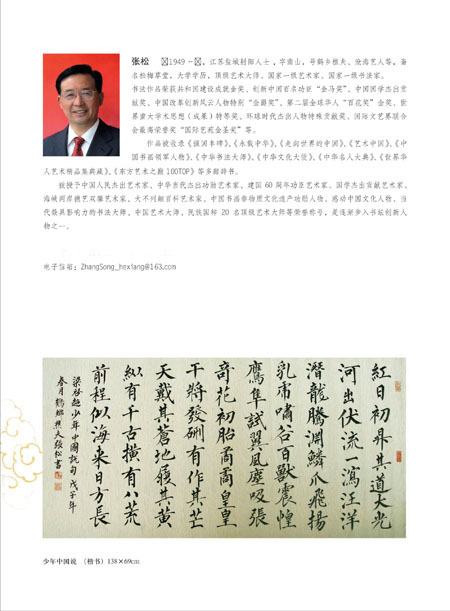 张松 （1949－），江苏盐城射阳人士，字南山，号鹤乡樵夫、沧海艺人等，斋
名松梅草堂，大学学历，顶级艺术大师、国家一级艺术家、国家一级书法家。
书法作品荣获共和国建设成就金奖、创新中国百名功臣“金马奖”、中国国学杰出贡
献奖、中国改革创新风云人物特别“金爵奖”、第二届全球华人“百花奖”金奖、世
界重大学术思想（成果）特等奖、环球时代杰出人物特殊贡献奖、国际文艺界联合
会最高荣誉奖“国际艺苑金圣奖”等。
作品被收录《强国丰碑》、《永载中华》、《走向世界的中国》、《艺术中国》、《中
国书画领军人物》、《中华书法大师》、《中华文化大使》、《中华名人大典》、《世界华
人艺术精品集典藏》、《东方艺术之巅100TOP》等多部诗书。
被授予中国人民杰出艺术家、中华当代杰出功勋艺术家、建国60周年功臣艺术家、国学杰出贡献艺术家、
海峡两岸德艺双馨艺术家、大不列颠百科艺术家、中国书画非物质文化遗产功勋人物、感动中国文化人物、当
代最具影响力的书法大师、中国艺术大师、民族国际20名顶级艺术大师等荣誉称号，是逐渐步入书坛创新人
物之一。
电子信箱：ZhangSong_hexiang@163.com
紅日初昇其道大光
河出伏流一瀉汪洋
潜龍騰淵鱗爪飛揚
乳虎嘯谷百獸震惶
鷹隼試翼風塵吸張
奇花初胎矞矞皇皇
干將發硎有作其芒
天戴其蒼地履其黄
縱有千古横有八荒
前程似海来日方長
梁啓超少年中國説句 戊子年
春月鶴鄉樵夫張松書
少年中国说 （楷书） 138×69cm